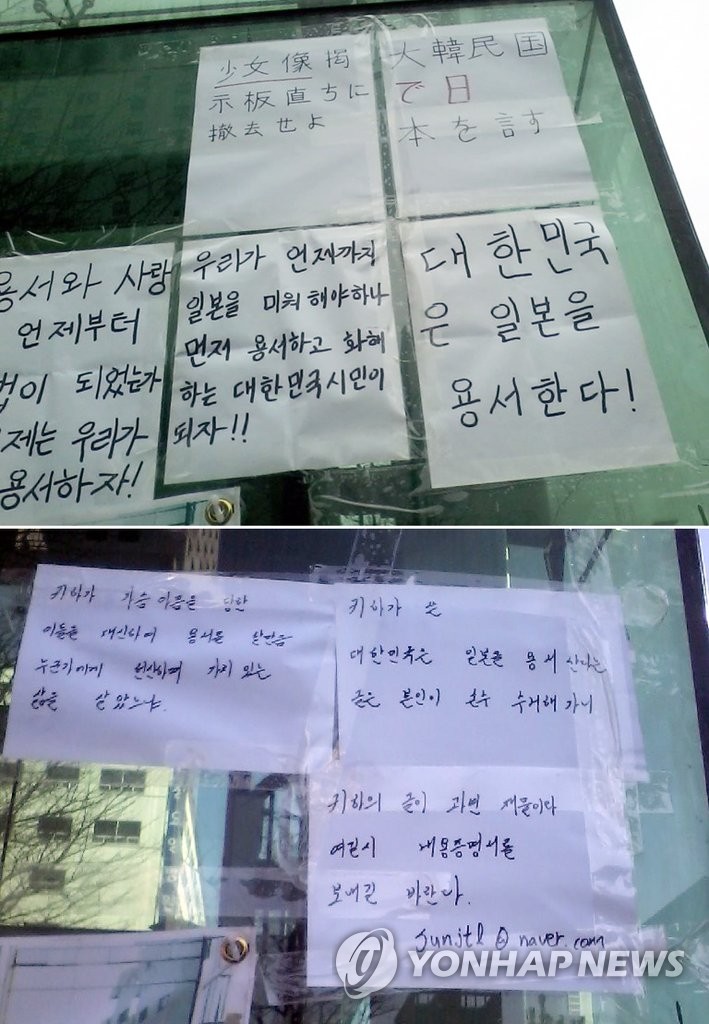 少女像掲
示板直ちに
撤去せよ
大韓民国
で日
本を言す
용서와 사랑
언제부터
법이 되었는가
이제는 우리가
용서하자!
우리가 언제까지
일본을 미워해야하나
먼저 용서하고 화해
하는 대한민국시민이
되자!!
대한민국
은 일본을
용서한다!
키하가 가슴아픔을 당한
이들을 대신하여 용서를 할만큼
누군가에게 헌신하며 가치있는
삶을 살았느냐.
키하가 쓴
대한민국은 일본을 용서 산다는
글은 본인이 손수 수거해가니
키하의 글이 과연 재물이라
여긴시 내용증명서를
보내길 바란다.
@naver.com
YONHAP NEWS